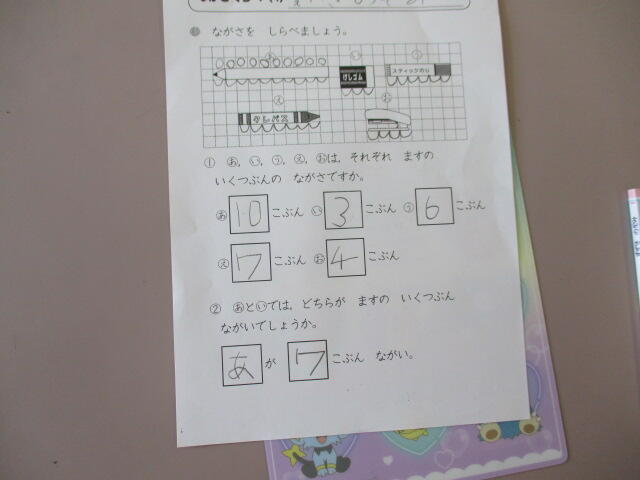 ながさを しらべましょう。
あ い う
けしゴム
スティックのり
え お
クレパス
① あ, い, う, え, おは, それぞれ ますの
いくつぶんの ながさですか。
あ 10 こぶん い 3 こぶん う 6 こぶん
え 7 こぶん お 4 こぶん
② あといでは, どちらが ますの いくつぶん
ながいでしょうか。
あ が 7 こぶん ながい。